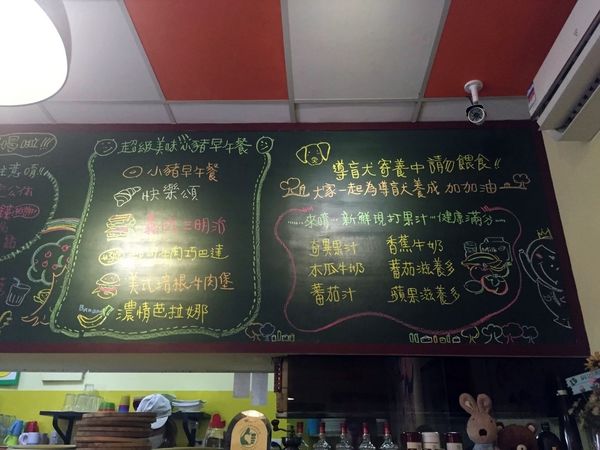 超級美味小豬早午餐
小豬早午餐
快樂頌
三明治
巧巴達
美式培根牛肉堡
Banana
濃情芭拉娜
導盲犬寄養中請勿餵食!!
大家一起為導盲犬養成加加油
來唷…新鮮現打果汁…健康滿分
奇異果汁 香蕉牛奶
木瓜牛奶 蕃茄滋養多
蕃茄汁 蘋果滋養多